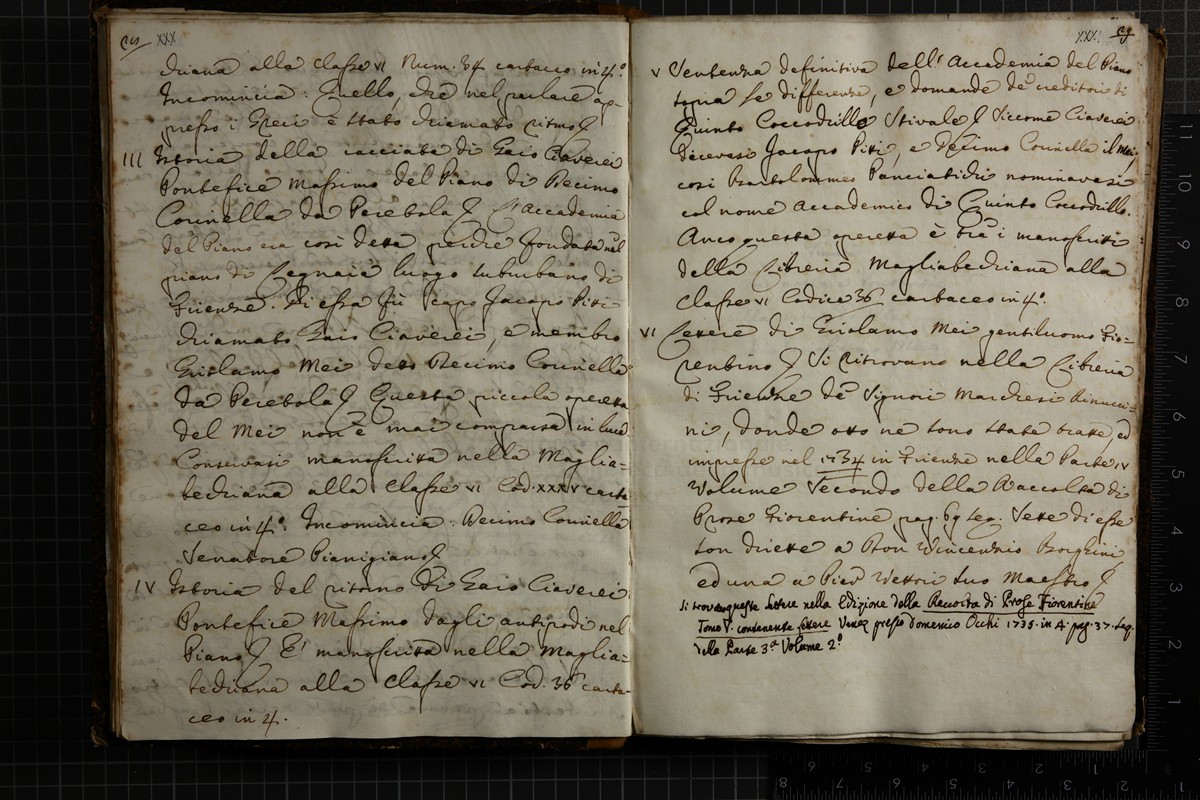 XXX
chiana alla Classe VI Num. 34 cartaceo in 4.°
Incomincia: Quello, che nel parlare ap-
presso i Greci è stato chiamato ritmo
III Istoria della cacciata di Gaio Ciaverei
Pontefice Massimo del Piano di Decimo
Corinella da Peretola L'Accademia
del Piano era così detta perchè fondata nel
piano di Legnaia luogo suburbano di
Firenze. Di essa fù capo Jacopo Pitti
chiamato Gaio Ciaverei, e membro
Girolamo Mei detto Decimo Corinella
da Peretola Questa piccola operetta
del Mei non è mai comparsa in luce
Conservasi manoscritta nella Maglia=
bechiana alla Classe VI Cod. XXXV carta
ceo in 4.° Incomincia: Decimo Corinella
Venatore Pianigiano
IV Istoria del ritorno di Gaio Ciaverei
Pontefice Massimo dagli antipodi nel
Piano E' manoscritta nella Maglia=
bechiana alla Classe VI Cod. 36 carta-
ceo in 4.
XXXI
V Sentenza definitiva dell'Accademia del Piano
sopra le differenze, e domande de' creditori di
Quinto Coccodrillo Stivale Siccome Ciaverei
dicevasi Jacopo Pitti, e Decimo Corinella il Mei,
così Bartolommeo Panciatichi nominavasi
col nome Accademico di Quinto Coccodrillo.
Anco questa operetta è tra i manoscritti
della Libreria Magliabechiana alla
Classe VI Codice 36 cartaceo in 4.°
VI Lettere di Girolamo Mei gentiluomo Fio=
rentino Si ritrovano nella Libreria
di Firenze de' Signori Marchesi Rinucci=
ni, donde otto ne sono state tratte, ed
impresse nel 1734 in Firenze nella Parte IV
Volume Secondo della Raccolta di
Prose Fiorentine pag. 69 seg. Sette di esse
son dirette a Don Vincenzio Borghini
ed una a Pier Vettori suo Maestro
Si trovano queste Lettere nella Edizione della Raccolta di Prose Fiorentine
Tomo V. contenente Lettere Venez. presso Domenico Occhi 1735. in 4. pag. 37. seq.
della Parte 3.a Volume 2.°